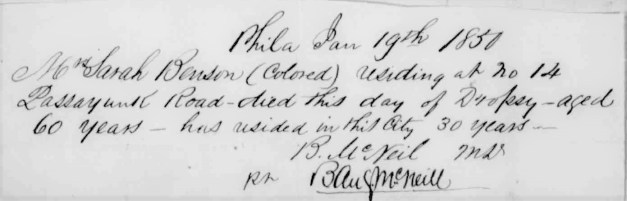 Phila Jan 19th 1850
Mrs Sarah Benson (Colored) residing at no 14
Passayunk Road - died this day of Dropsy - aged
60 years - has resided in this City 30 years -
B. McNeil MD
pr B Aug McNeill